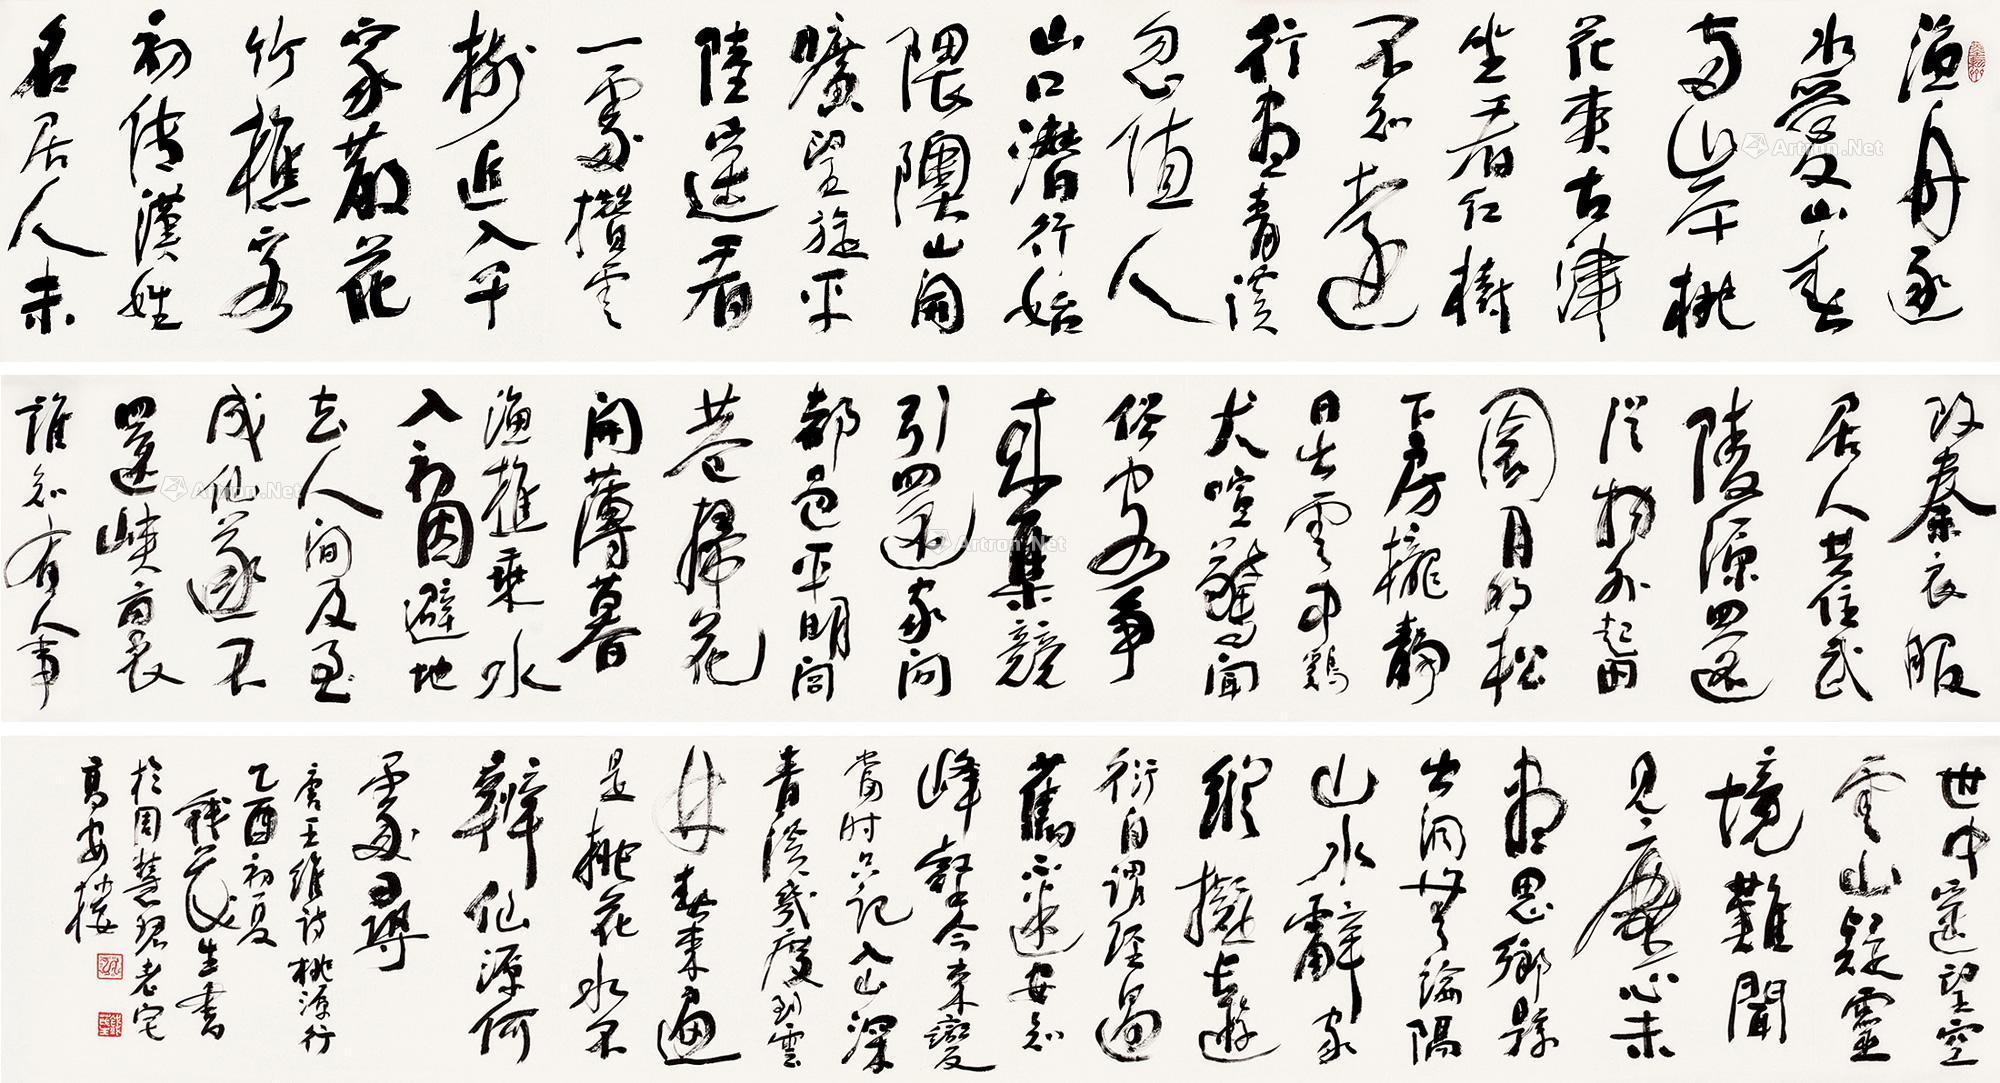 漁舟逐
水愛山春
兩岸桃
花夾古津
坐看紅樹
不知遠
行盡青溪
忽值人
山口潛行始
隈隩山開
曠望旋平
陸遙看
一處攢雲
樹近入千
家散花
竹樵客
初傳漢姓
名居人未
改秦衣服
居人共住武
陵源還
從物外起田
園月明松
下房櫳靜
日出雲中鷄
犬喧驚聞
俗客爭
來集競
引還家問
都邑平明閭
巷掃花
開薄暮
漁樵乘水
入初因避地
去人間及至
成仙遂不
還峽裏
誰知有人事
世中遙望空
雲山疑靈
境難聞
見塵心未
盡思鄉縣
出洞無論隔
山水辭家
終擬長遊
衍自謂經過
舊不迷安知
峰壑今來變
當時只記入山深
青溪幾度到雲
林春來遍
是桃花水不
辨仙源何
處尋
唐王維詩桃源行
乙酉初夏
生書
於周慧珺老宅
高安樓
Artron.Net
Artron.Net
Artron.Net
Artron.Net